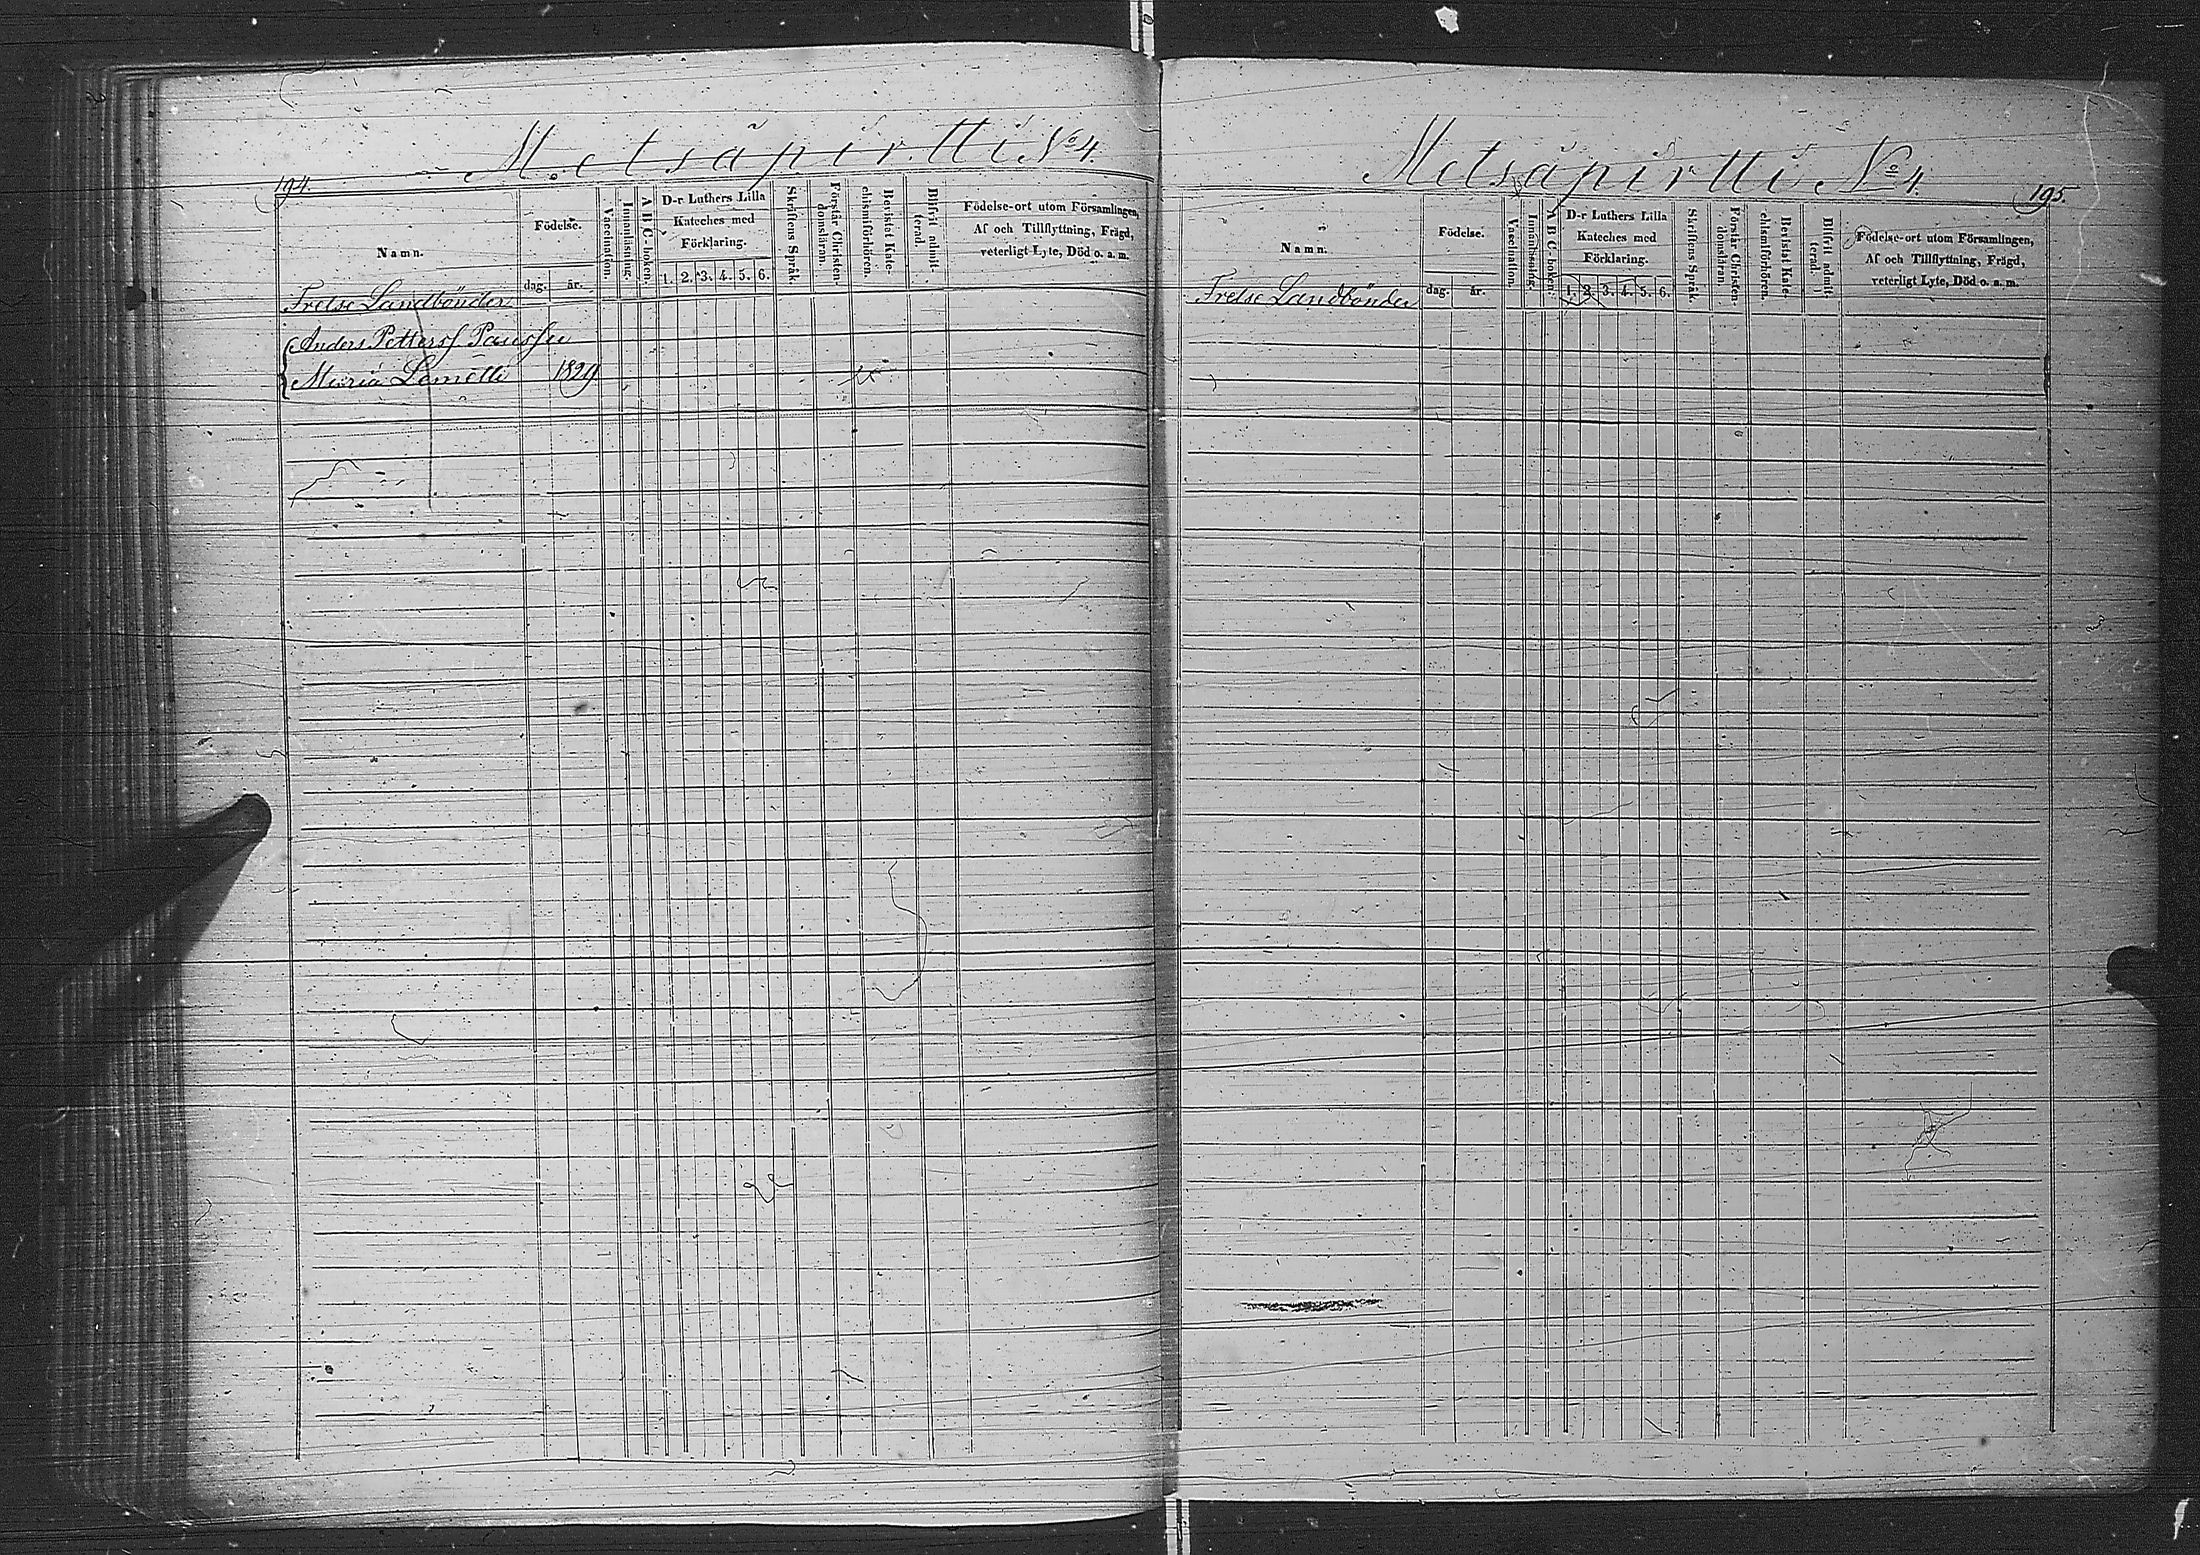 194.
Metsäpirtti No 4.
Namn.
Födelse.
dag. år.
Vaccination.
Innanläsning.
A B C-boken.
D-r Luthers Lilla
Kateches med
Förklaring.
1. 2. 3. 4. 5. 6.
Skriftens Språk.
Förstår Christen-
domsläran.
Bevistat Kate-
chismiförhören.
Blifvit admit-
terad.
Födelse-ort utom Församlingen,
Af och Tillflyttning, Frägd,
veterligt Lyte, Död o. a. m.
Frelse Landbönder
Anders Petterss
Maria Lemetti 1829
Metsäpirtti No 4.
195.
Namn.
Födelse.
dag. år.
Vaccination.
Innanläsning.
A B C-boken.
D-r Luthers Lilla
Kateches med
Förklaring.
1. 2. 3. 4. 5. 6.
Skriftens Språk.
Förstår Christen-
domsläran.
Bevistat Kate-
chismiförhören.
Blifvit admit-
terad.
Födelse-ort utom Församlingen,
Af och Tillflyttning, Frägd,
veterligt Lyte, Död o. a. m.
Frelse Landbönder